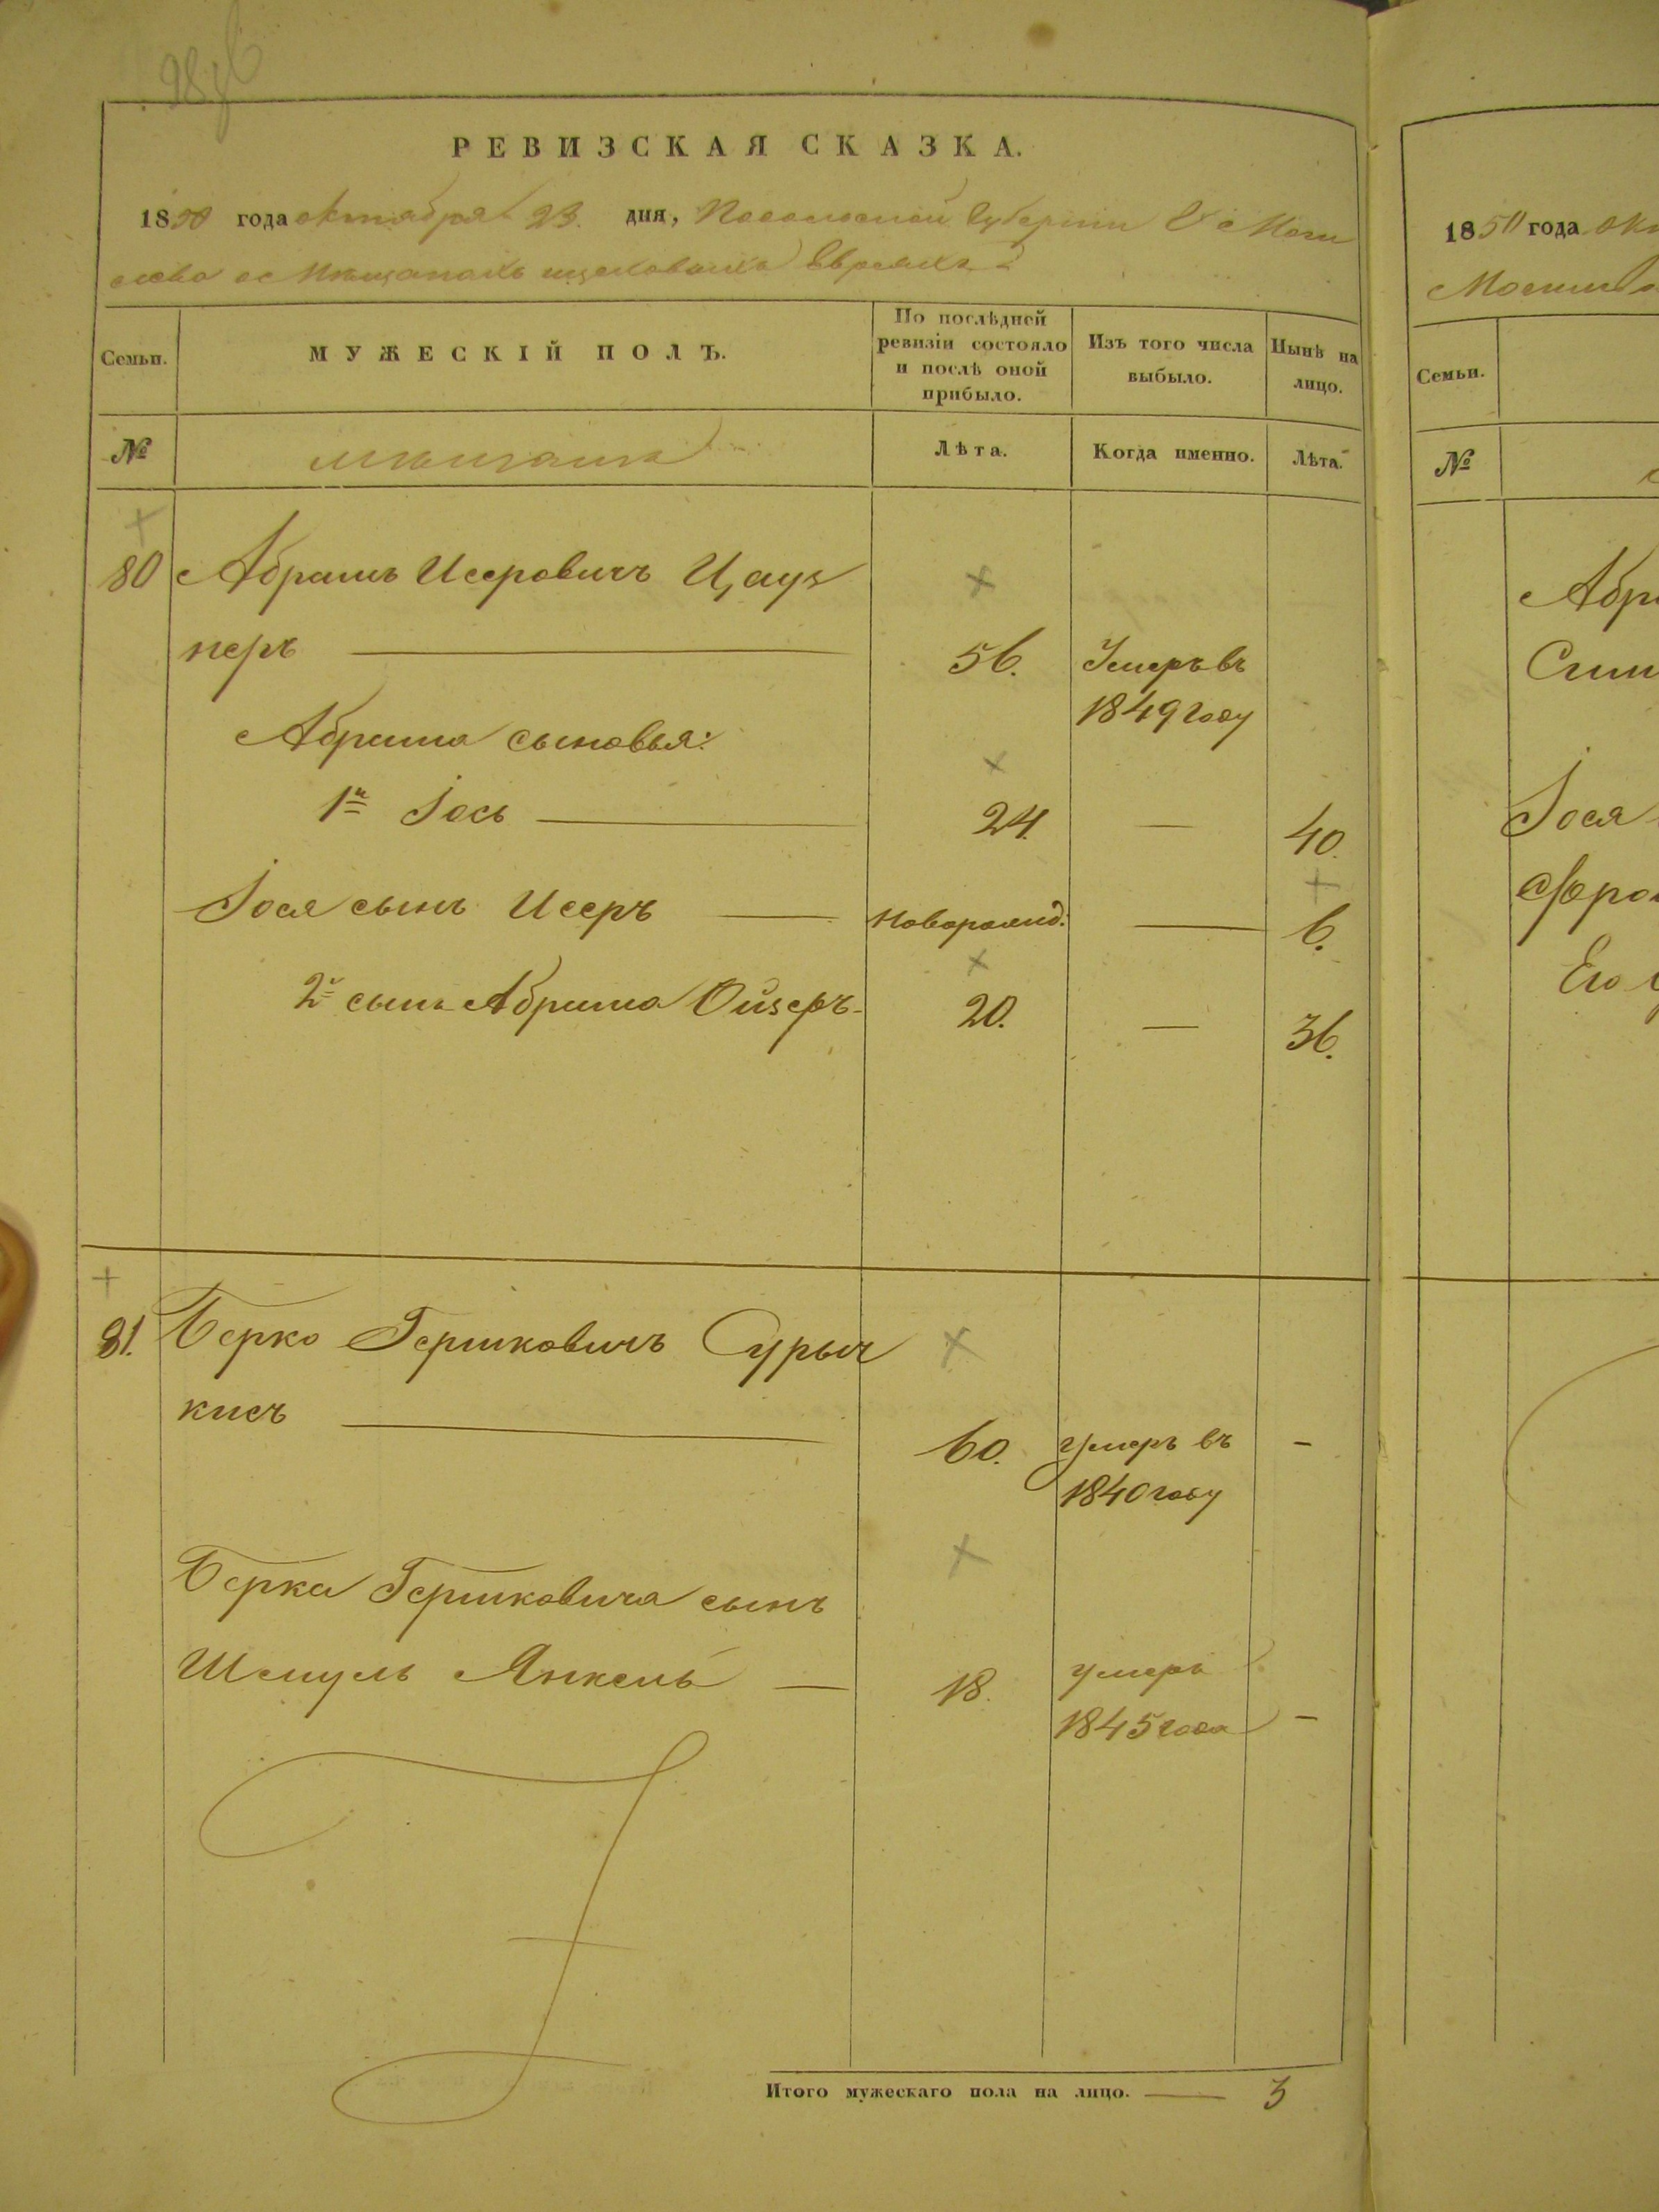 РЕВИЗСКАЯ СКАЗКА.
1850 года октября 23. дня, Подольской Губернии Моги
лева о Мѣщанахъ Евреяхъ
Семьи.
МУЖЕСКІЙ ПОЛЪ.
По послѣдней ревизіи состояло и послѣ оной прибыло.
Изъ того числа выбыло.
Нынѣ на лицо.
№
мѣщане
Лѣта.
Когда именно.
Лѣта.
80 Абрамъ Исеровичъ Цауз
неръ 56. Умеръ въ
1849 году
Абрама сыновья:
1й Іось 24. 40.
Іося сынъ Исеръ Новорожд: 6.
2й сынъ Абрама Ойзеръ 20. 36.
81. Берко Гершковичъ Сурыч
кисъ 60. умеръ въ
1840 году
Берка Гершковича сынъ
Шмуль Янкель 18. умеръ
1845 года
Итого мужескаго пола на лицо. 3
1850 года ок
Могилев
Семьи.
№
Абра
Іося
Фро
Его